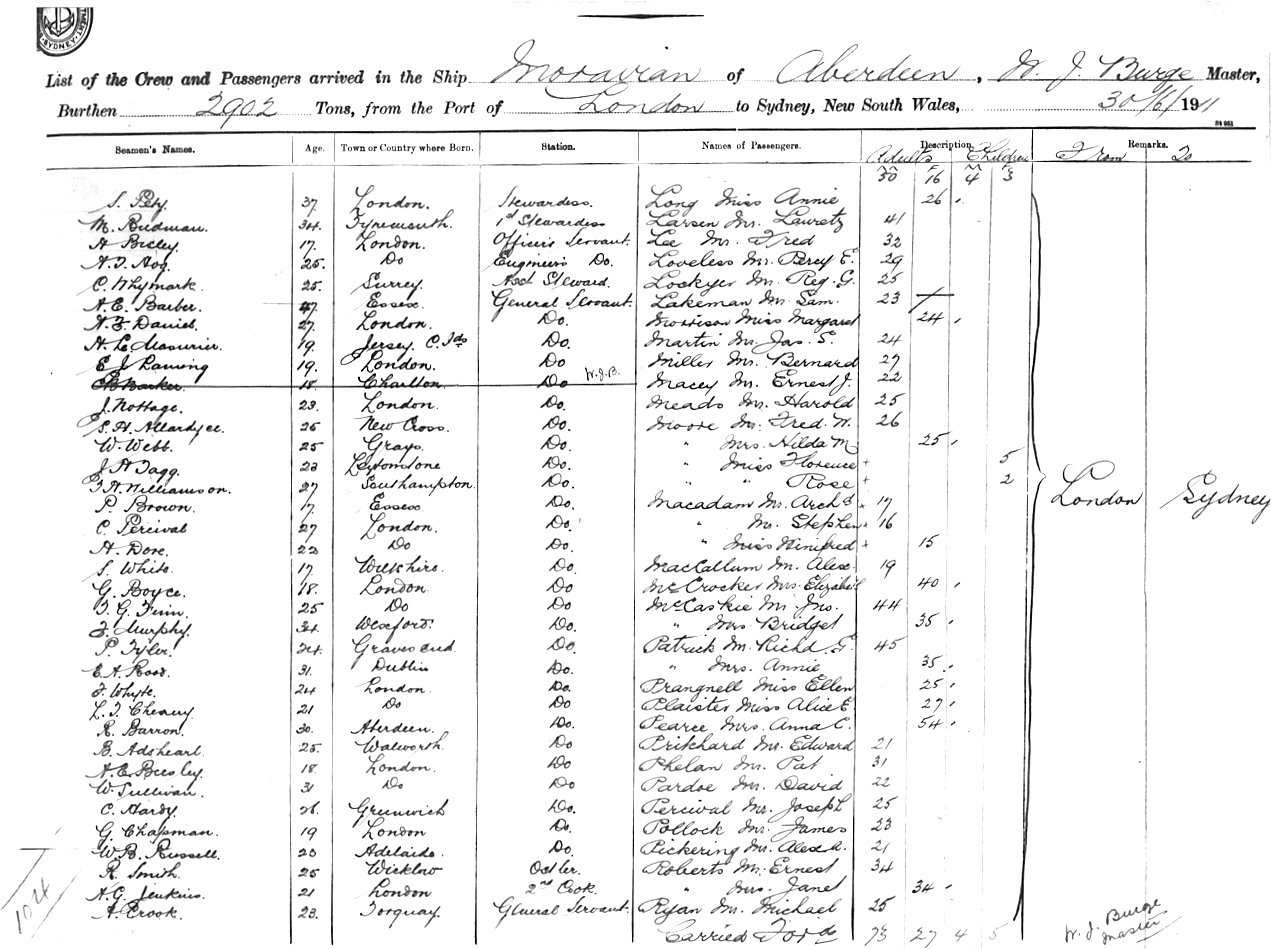 SYDNEY
List of the Crew and Passengers arrived in the Ship Moravian of Aberdeen, W. J. Burge Master,
Burthen 2902 Tons, from the Port of London to Sydney, New South Wales, 30/6/1911
Seamen's Names. Age. Town or Country where Born. Station. Names of Passengers. Description. Remarks.
Adults Children From To
M F M F
50 16 4 3
37 London. Stewardess. Long Miss Annie 26
M. Budman. 34 Tynemouth. 1st Stewardess Larsen Mr. Lauretz 41
A Bisley. 17. London. Officers Servant. Lee Mr. Fred 32
25. Do Engineers Do. Loveless Mr. Percy E. 29
C. Whymark. 25. Surrey. Asst Steward. Lockyer Mr. Reg. G. 25
A. E. Barber. 47 Essex. General Servant. Lakeman Mr. Sam. 23
A. F. Daniel. 27. London. Do. Morrison Miss Margaret 24
A. Le Masurier. 19. Jersey. C. Ids Do. Martin Mr. Jas. S. 24
E J Laming 19. London. Do Miller Mr. Bernard 27
Barker. 18. Charlton. Do W.J.B. Macey Mr. Ernest J. 22
J. Nottage. 23. London. Do. Meads Mr. Harold 25
S. H. Allardyce. 26 New Cross. Do. Moore Mr. Fred. W. 26
W. Webb. 25 Grays. Do. " Mrs. Hilda M. 25
J A Tagg. 23 Leytonstone Do. " Miss Florence + 5
F. A. Williamson. 27 Southampton. Do. " " Rose + 2
P. Brown. 17. Essex Do. Macadam Mr. Archd + 17
C. Percival 27 London. Do. " Mr. Stephen + 16
A. Dore. 22 Do Do. " Miss Winifred + 15
S. White. 17 Wiltshire. Do. MacCallum Mr. Alex. 19
G. Boyce. 18. London. Do McCrocker Mrs. Elizabth 40
T. G. Finn. 25 Do Do. McCaskie Mr. Jno. 44
F. Murphy. 34 Wexford. Do. " Mrs Bridget 35
P. Tyler. 24. Gravesend. Do. Patrick Mr. Richd G. 45
E. A. Rood. 31. Dublin Do. " Mrs. Annie 35
F. Whyte. 24 London. Do. Prangnell Miss Ellen 25
L. J. Cheary. 21 Do Do. Plaister Miss Alice E. 27
R. Barron. 30. Aberdeen. Do. Pearce Mrs. Anna C. 54
B. Adsheart. 25. Walworth. Do Pritchard Mr. Edward 21
A. E. Beesley. 18. London. Do Phelan Mr. Pat 31
W. Sullivan. 31 Do Do. Pardoe Mr. David 22
C. Hardy. 26. Greenwich Do. Percival Mr. Joseph 25
G. Chapman. 19 London Do. Pollock Mr. James 23
W. B. Russell. 23 Adelaide. Do. Pickering Mr. Alex A. 21
R. Smith. 25 Wicklow Ostler. Roberts Mr. Ernest 34
A. G. Jenkins. 21 London 2nd Cook. " Mrs. Jane 34
A. Crook. 23. Torquay. General Servant. Ryan Mr. Michael 25
London Sydney
Carried Ford 73 27 4 5
W. J. Burge
Master
104